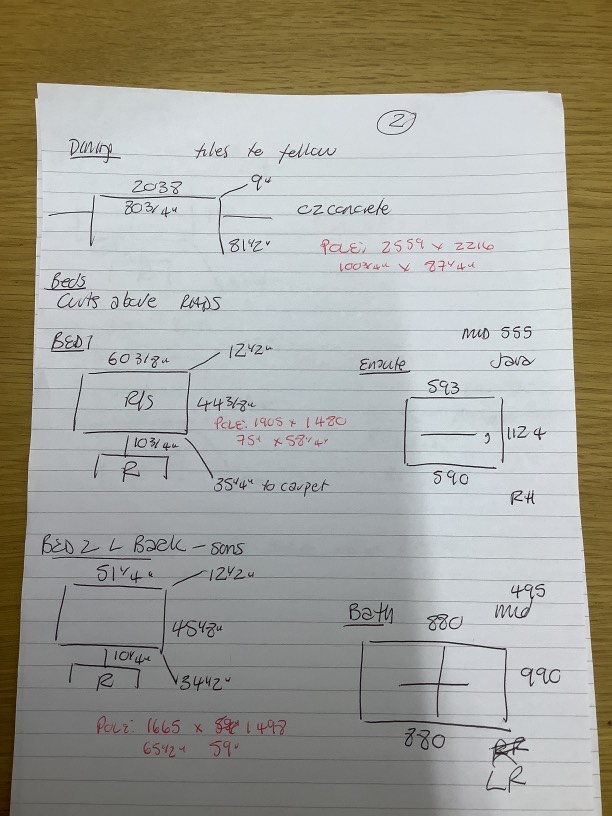 2
Dining tiles to follow
2038
80 3/4"
9"
CZ concrete
81 1/2"
POLE: 2559 x 2216
100 3/4" x 87 1/4"
Beds
Cuts above RADS
BED 1
60 3/8"
12 1/2"
R/S
44 3/8"
POLE: 1905 x 1480
75" x 58 1/4"
10 3/4"
R
35 1/4" to carpet
MID 555
Ensuite Java
593
1124
590
RH
BED 2 L Back - sons
51 1/4"
12 1/2"
45 1/8"
10 1/4"
R
34 1/2"
POLE: 1665 x 1498
65 1/2" 59"
495
Bath 880 mid
990
880
LR